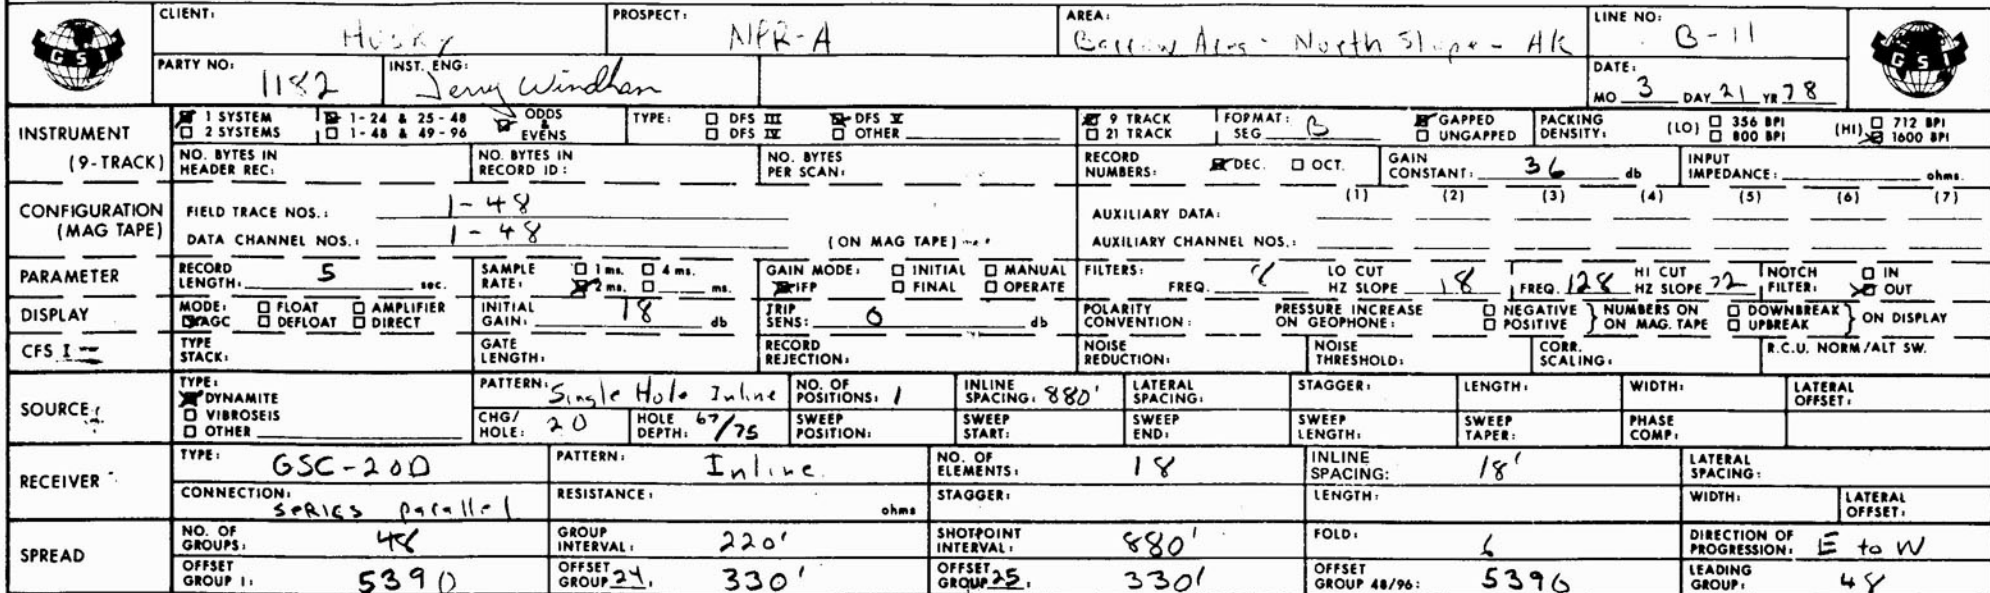 CLIENT: Husky PROSPECT: NPR-A AREA: Barrow Area - North Slope - AK LINE NO: B-11
GSI GSI
PARTY NO: 1182 INST. ENG: Jerry Windham DATE: MO 3 DAY 21 YR 78
INSTRUMENT (9-TRACK) 1 SYSTEM 1-24 & 25-48 ODDS & EVENS TYPE: DFS III DFS V 9 TRACK FORMAT: SEG B GAPPED PACKING DENSITY: (LO) 356 BPI (HI) 712 BPI
2 SYSTEMS 1-48 & 49-96 DFS IV OTHER 21 TRACK UNGAPPED 800 BPI 1600 BPI
NO. BYTES IN HEADER REC: NO. BYTES IN RECORD ID: NO. BYTES PER SCAN: RECORD NUMBERS: DEC. OCT. GAIN CONSTANT: 36 db INPUT IMPEDANCE: ohms.
CONFIGURATION (MAG TAPE) FIELD TRACE NOS.: 1-48 AUXILIARY DATA: (1) (2) (3) (4) (5) (6) (7)
DATA CHANNEL NOS.: 1-48 (ON MAG TAPE) AUXILIARY CHANNEL NOS.:
PARAMETER RECORD LENGTH: 5 sec. SAMPLE RATE: 1 ms. 4 ms. 2 ms. ms. GAIN MODE: INITIAL MANUAL IFP FINAL OPERATE FILTERS: FREQ. LO CUT HZ SLOPE 18 FREQ. 128 HI CUT HZ SLOPE 72 NOTCH FILTER: IN OUT
DISPLAY MODE: FLOAT AMPLIFIER AGC DEFLOAT DIRECT INITIAL GAIN: 18 db TRIP SENS: 0 db POLARITY CONVENTION: PRESSURE INCREASE ON GEOPHONE: NEGATIVE POSITIVE NUMBERS ON ON MAG. TAPE DOWNBREAK UPBREAK ON DISPLAY
CFS I TYPE STACK: GATE LENGTH: RECORD REJECTION: NOISE REDUCTION: NOISE THRESHOLD: CORR. SCALING: R.C.U. NORM/ALT SW.
SOURCE TYPE: DYNAMITE VIBROSEIS OTHER PATTERN: Single Hole Inline NO. OF POSITIONS: 1 INLINE SPACING: 880' LATERAL SPACING: STAGGER: LENGTH: WIDTH: LATERAL OFFSET:
CHG/HOLE: 20 HOLE DEPTH: 67/75 SWEEP POSITION: SWEEP START: SWEEP END: SWEEP LENGTH: SWEEP TAPER: PHASE COMP:
RECEIVER TYPE: GSC-20D PATTERN: Inline NO. OF ELEMENTS: 18 INLINE SPACING: 18' LATERAL SPACING:
CONNECTION: series parallel RESISTANCE: ohms STAGGER: LENGTH: WIDTH: LATERAL OFFSET:
SPREAD NO. OF GROUPS: 48 GROUP INTERVAL: 220' SHOTPOINT INTERVAL: 880' FOLD: 6 DIRECTION OF PROGRESSION: E to W
OFFSET GROUP 1: 5390 OFFSET GROUP 24: 330' OFFSET GROUP 25: 330' OFFSET GROUP 48/96: 5390 LEADING GROUP: 48